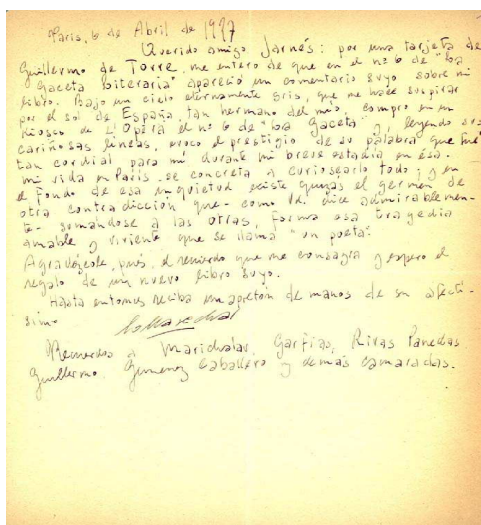 Paris, 6 de Abril de 1927
Querido amigo Jarnés: por una tarjeta de
Guillermo de Torre, me entero de que en el nº 6 de "La
Gaceta Literaria" apareció un comentario suyo sobre mi
libro. Bajo un cielo eternamente gris, que me hace suspirar
por el sol de España, tan hermano del mío, compro en un
kiosco de L'Opéra el nº 6 de "La Gaceta" y, leyendo sus
cariñosas líneas, evoco el prestigio de su palabra que fué
tan cordial para mí durante mi breve estadía en ésa.
Mi vida en París se concreta a curiosearlo todo; y en
el fondo de esa inquietud existe quizás el germen de
otra contradicción que - como Vd. dice admirablemen-
te - sumándose a las otras, forma esa tragedia
amable y viviente que se llama "un poeta".
Agradézcole, pués, el recuerdo que me consagra y espero el
regalo de un nuevo libro suyo.
Hasta entonces reciba un apretón de manos de su afectí-
simo
LMarechal
Recuerdos a Marichalar, Garfias, Rivas Panedas,
Guillermo, Gimenez Caballero y demás camaradas.